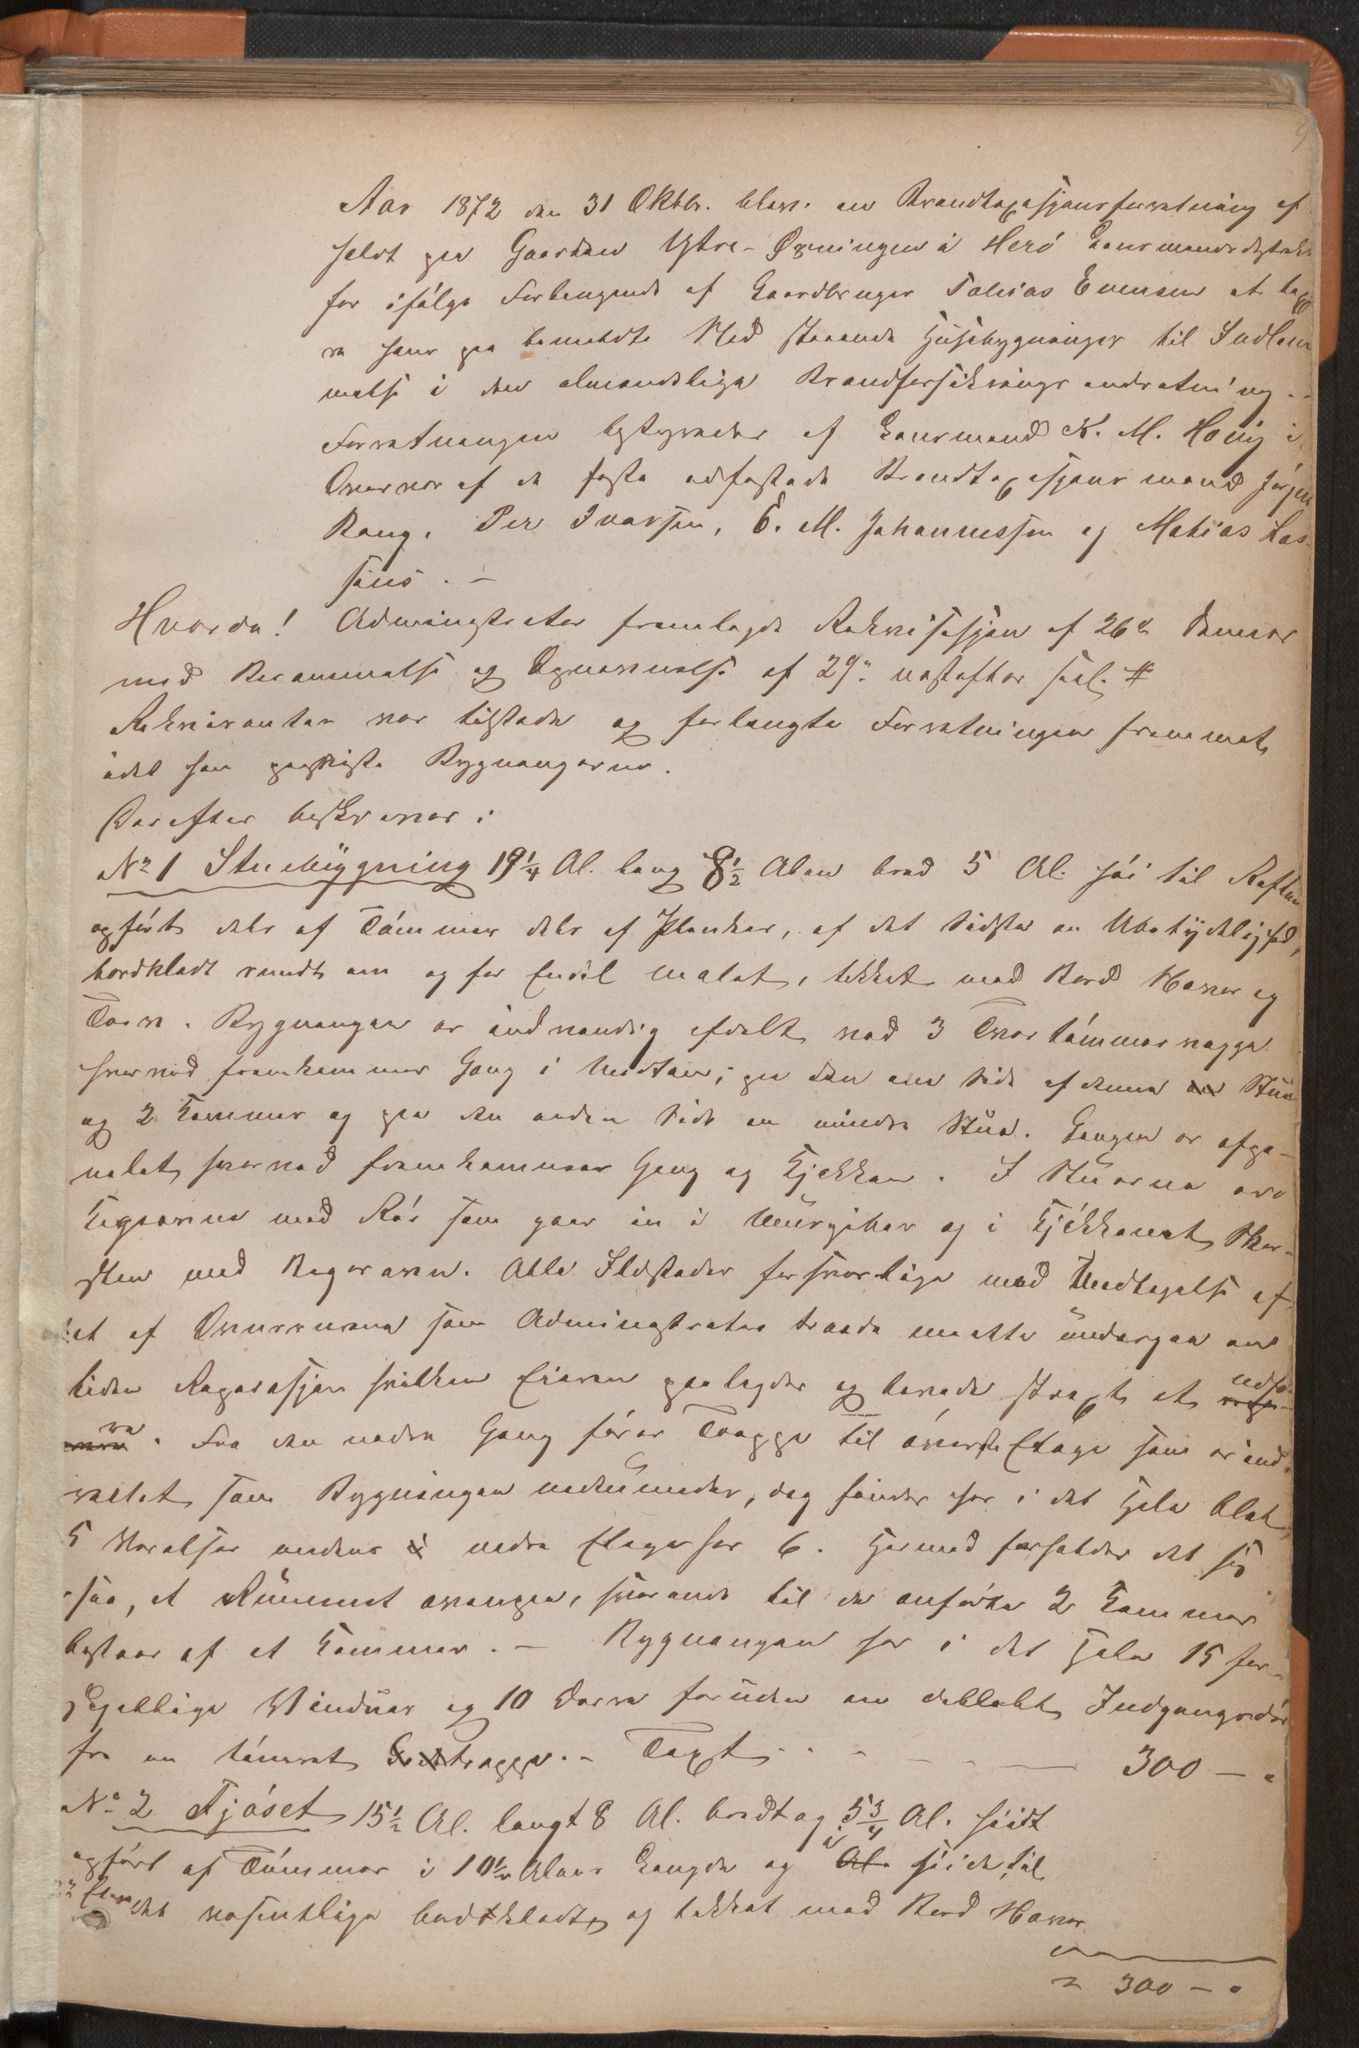 9
Aar 1872 den 31 Oktbr. blev en Brandtaxasjonsforretning af
holdt paa Gaarden Ytre-Øxningen i Herö Lensmandsdistrikt
for ifölge Forlangende af Gaardbruger Tobias Evensen at taxe
re hans paa bemeldte Sted staaende Husebygninger til Indlem
melse i den almindelige Brandforsikringsindretning.
Forretningen bestyredes af Lensmand K. M. Höiig i
Overvær af de faste edfæstede Brandtaxasjonsmænd Jörgen
Bang, Per Ivarsen, E. M. Johannessen og Matias Las-
sens. -
Hvorda! Administrator fremlagde Rekvisisjon af 26de dennes
med Berammelse og Opnævnelse af 29de næstefter saal. #
Rekvirenten var tilstede og forlangte Forretningen fremmet,
idet han paaviste Bygningerne.
Derefter beskreves:
No 1 Stuebygning 19 1/4 Al. lang 8 1/2 Alen bred 5 Al. höi til Raftet
opfört dels af Tömmer dels af Planker, af det sidste en Ubetydelighed,
bordklædt rundt om og for Endel malet, tekket med Bord Næver og
Torv. Bygningen er indvendig afdelt ved 3 Tvertömmervægge
hvorved fremkommer Gang i Midten; paa den ene Side af denne en Stue
og 2 Kammer og paa den anden Side en mindre Stue. Gangen er afpa-
nelet hvorved fremkommer Gang og Kjökken. I Stuerne ere
Kogeovne med Rör som gaar in i Murpiber og i Kjökkenet Skor-
sten med Bagerovn. Alle Ildsteder forsvarlige med Undtagelse af
et af Ovnrörene som Administrator troede maatte undergaa en
liden Reparasjon hvilken Eieren paalagdes og lovede strax at udfö-
re. Fra den nedre Gang förer Trappe til överste Etage som er ind
redet som Bygningen nedenunder, dog findes her i det Hele blot
5 Værelser medens i nedre Etage har 6. Hermed forholder det sig
saa, at Rummet ovenpaa, svarende til de anförte 2 Kammer
bestaar af et Kammer. - Bygningen har i det Hele 15 for-
skjellige Vinduer og 10 Dörre foruden en dobbelt Indgangsdör
fra en tömret trappe. - Taxt - - - 300 - "
No 2 Fjöset 15 1/2 Al. langt 8 Al. bredt og 5 3/4 Al. höidt
opfört af Tömmer i 10 1/2 Alens Længde og i Höide til
det væsentlige bordklædt og tekket med Bord Næver
300 - "